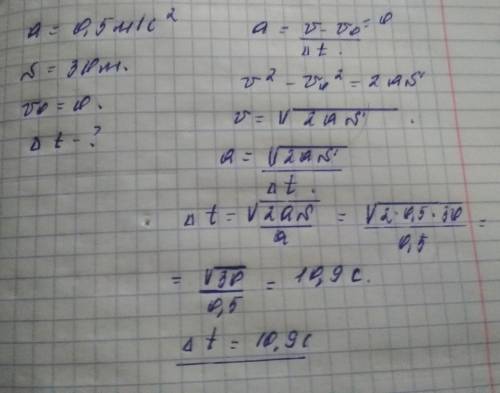 a = 0,5 м/с²
s = 30 м.
v₀ = 0.
Δt - ?
a = (v - v₀⁼⁰)/Δt.
v² - v₀² = 2as
v = √(2as).
a = √(2as)/Δt.
Δt = √(2as)/a = √(2·0,5·30)/0,5 =
= √30/0,5 = 10,9 с.
Δt = 10,9 с